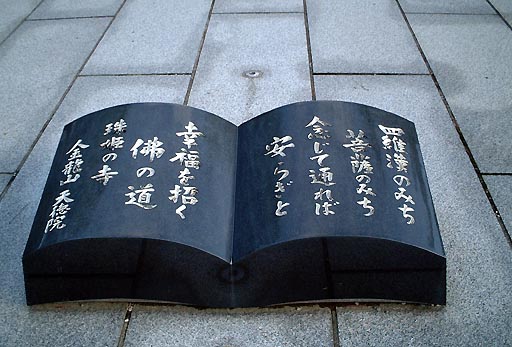 羅漢のみち
菩薩のみち
念じて通れば
安らぎと
幸福を招く
佛の道
珠姫の寺
金龍山 天徳院